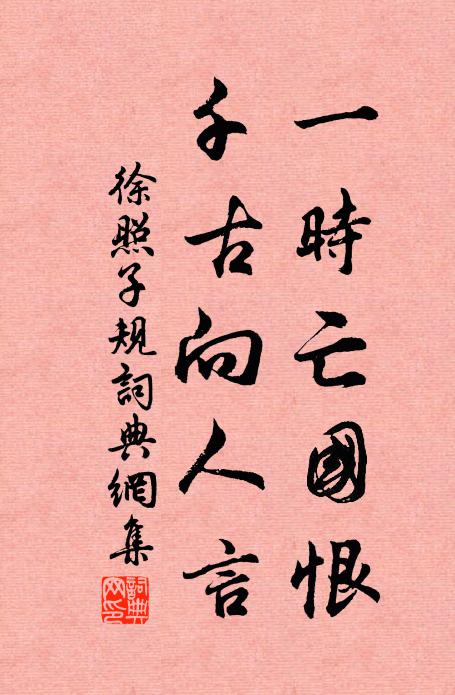 一時亡國恨
千古向人言
徐照子規詞典網集
詞典网印